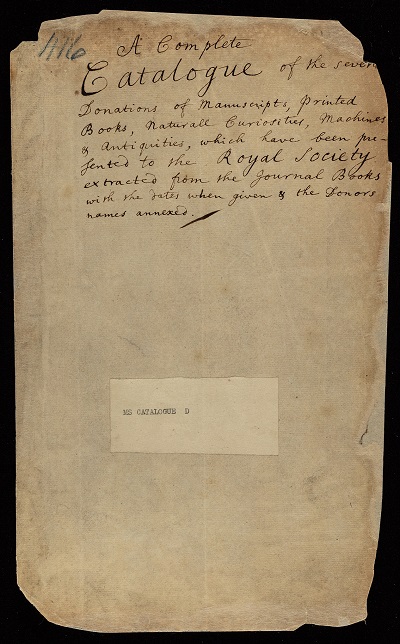 416
A Complete
Catalogue of the severa
Donations of Manuscripts, Printed
Books, Naturall Curiosities, Machines
& Antiquities, which have been pre-
sented to the Royal Society
extracted from the Journal Books
with the dates when given & the Donors
names annexed.
MS CATALOGUE D